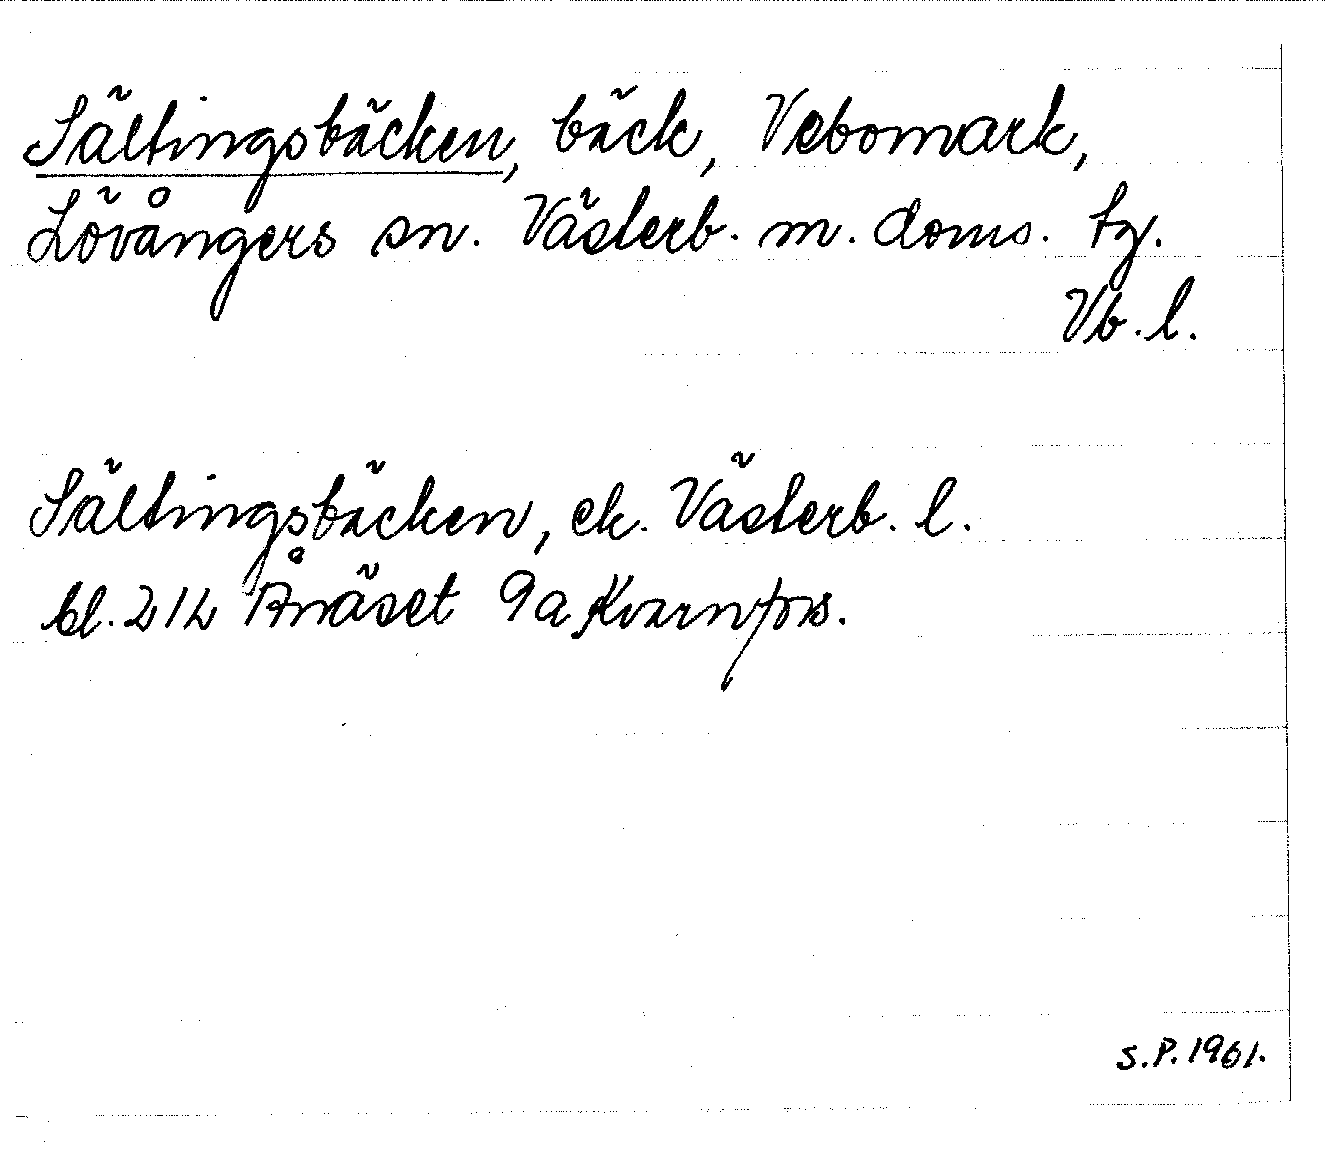 Sältingsbäcken, bäck, Vebomark,
Lövångers sn. Västerb. m. doms. tg.
Vb. l.
Sältingsbäcken, ek. Västerb. l.
bl. 21L Ånäset 9a Kvarnfors.
S.P. 1961.